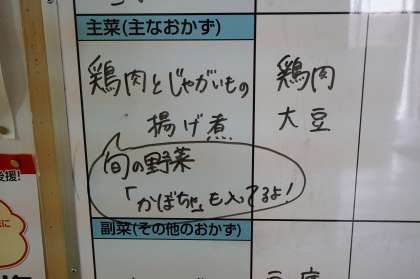 主菜(主なおかず)
鶏肉とじゃがいもの
揚げ煮
鶏肉
大豆
旬の野菜
「かぼちゃ」も入ってるよ!
副菜(その他のおかず)
後援!